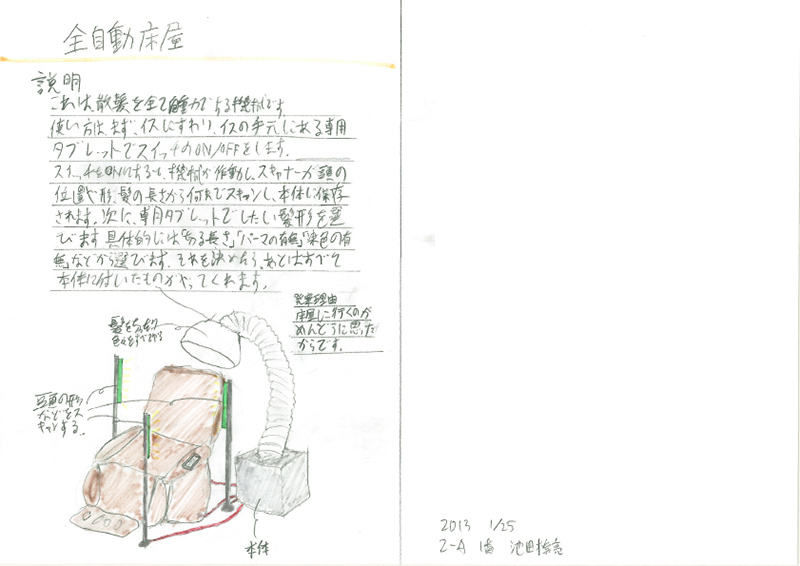 全自動床屋
説明
これは、散髪を全て自動でする機械です。
使い方は、まず、イスにすわり、イスの手元にある専用
タブレットでスイッチのON/OFFをします。
スイッチをONにすると、機械が作動し、スキャナーが頭の
位置や形、髪の長さから何までスキャンし、本体に保存
されます。次に、専用タブレットでしたい髪形を選
びます。具体的には「ある長さ」「パーマの有無」「染色の有
無」などから選びます。それを決めたら、あとはすべて
本体に付いたものがやってくれます。
発案理由
床屋に行くのが
めんどうに思った
からです。
髪を
頭の形
などをス
キャンする。
本体
2013 1/25
2-A 1番 池田